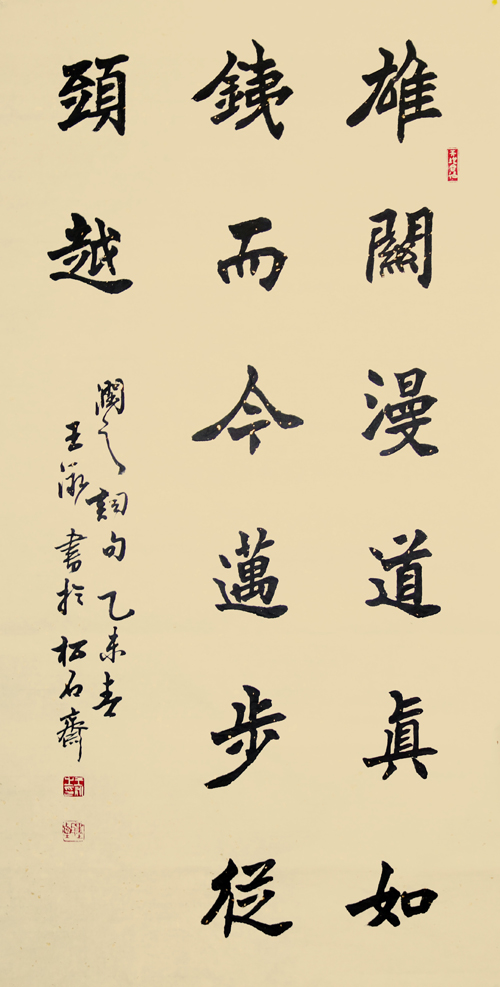 雄關漫道眞如
銕而今邁步從
頭越
潤之詞句乙未春
王書於松石齋